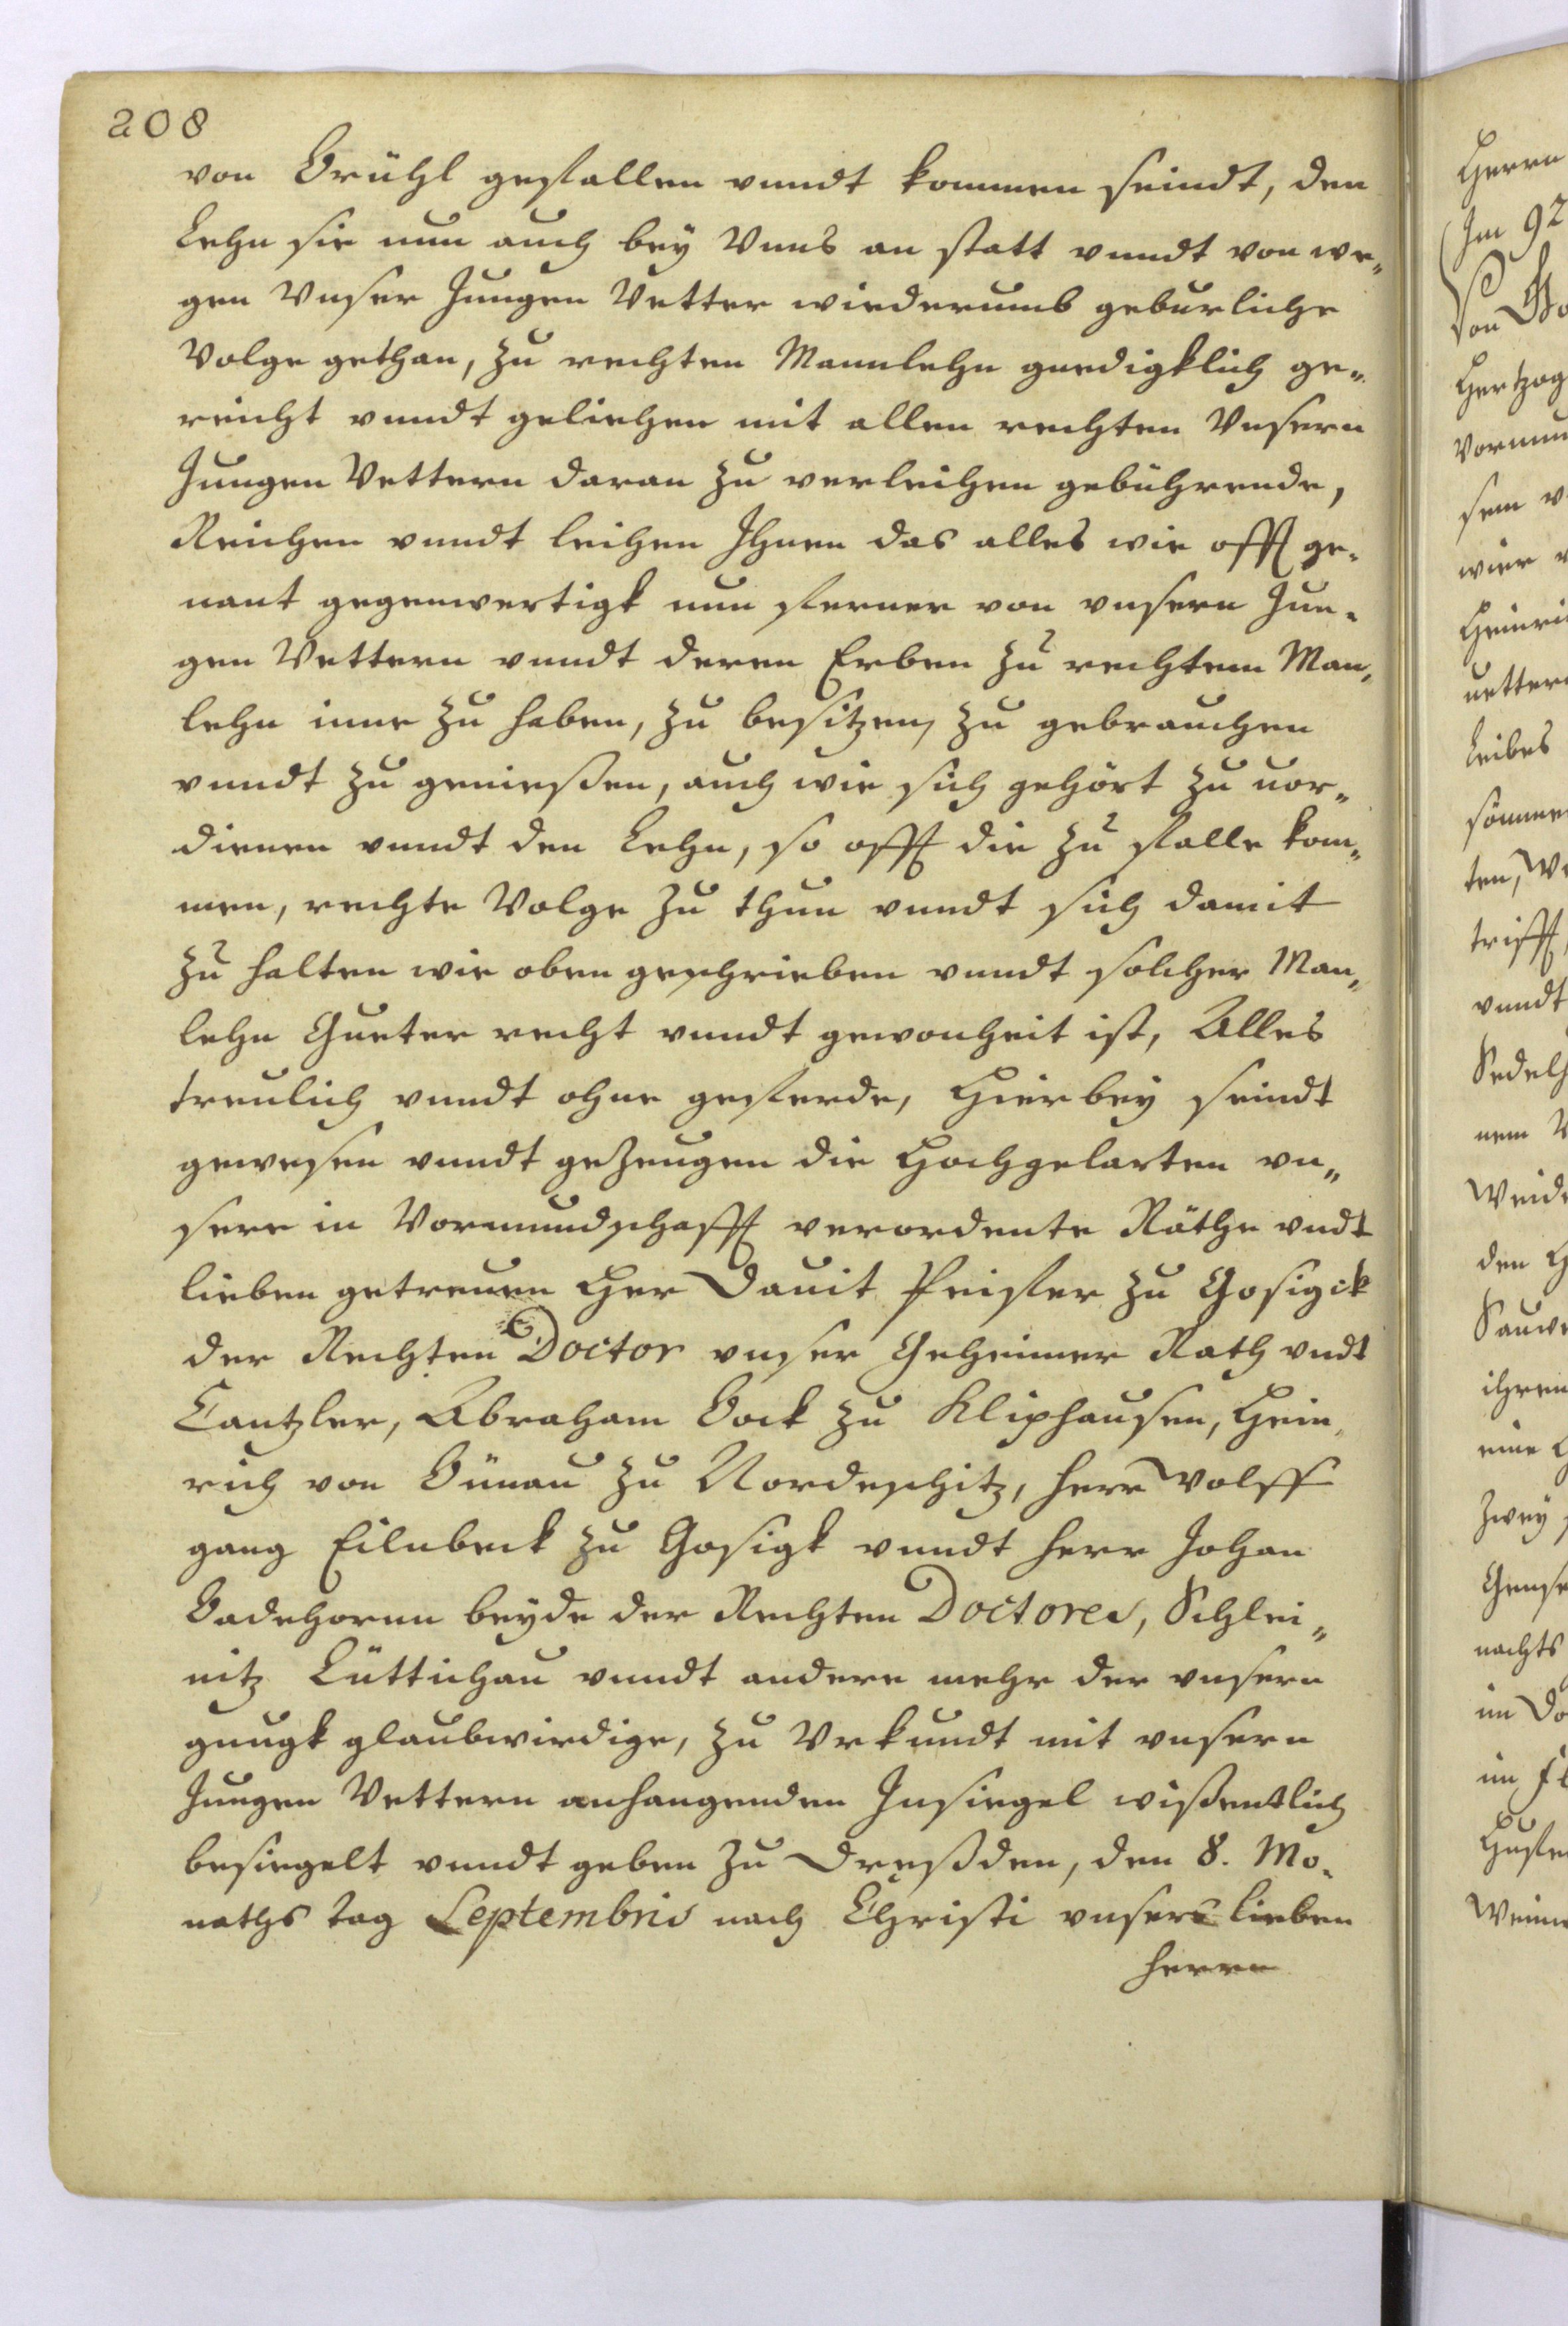 208
von Brühl gefallen vnndt kommen seindt, den
Lehn sie nun auch bey Vnns an statt vnndt von we„
gen Vnser Jungen Vetter wiederumb geburliche
Volge gethan, zu rechten Mannlehn gnedigklich ge„
reicht vnndt geliehen mit allen rechten Vnsern
Jungen Vettern daran zu verleihen gebührende,
Reichen vnndt leihen Ihnen das alles wie offt ge„
nant gegenwertigk nun ferner von vnsern Jun„
gen Vettern vnndt deren Erben zu rechtem Man„
lehn inne zu haben, zu besitzen, zu gebrauchen
vnndt zu genießen, auch wie sich gehört zu uor„
dienen vnndt den Lehn, so offt die zu falle kom„
men, rechte Volge zu thun vnndt sich damit
zu halten wie oben geschrieben vnndt solcher Man„
lehn Gueter recht vnndt gewonheit ist, Alles
treulich vnndt ohne geferde, Hierbey seindt
gewesen vnndt gezeugen die Hochgelarten vn„
sere in Vormundschafft verordente Räthe vndt
lieben getreuen Her Dauit Peifer zu Gosigck
der Rechten Doctor vnser Geheimer Rath vndt
Cantzler, Abraham Bock zu Kliphausen, Hein„
rich von Bünau zu Nordeschitz, Herr Wolff
gang Eilnbeck zu Gosigk vnndt Herr Johan
Badehornn beyde der Rechten Doctores, Schlei„
nitz Lüttichau vnndt andere mehr der vnsern
gnugk glaubwirdige, zu Vrkundt mit vnsern
Jungen Vettern anhangenden Insiegel wißentlich
besiegelt vnndt geben zu Dreßden, den 8. Mo„
naths tag Septembris nach Christi vnsers lieben
Herrn
Herrn
(Im 92
Von
Hertzog
Vormun
sem v
wier
Heinri
uettern
Leibes
sönnen
ten, We
trifft,
vnndt
Sedelh
nem V
Weide
den H
Sauw
ihrem
eine
zwey
Gense
nachts
im Do
im
Hufen
Weim